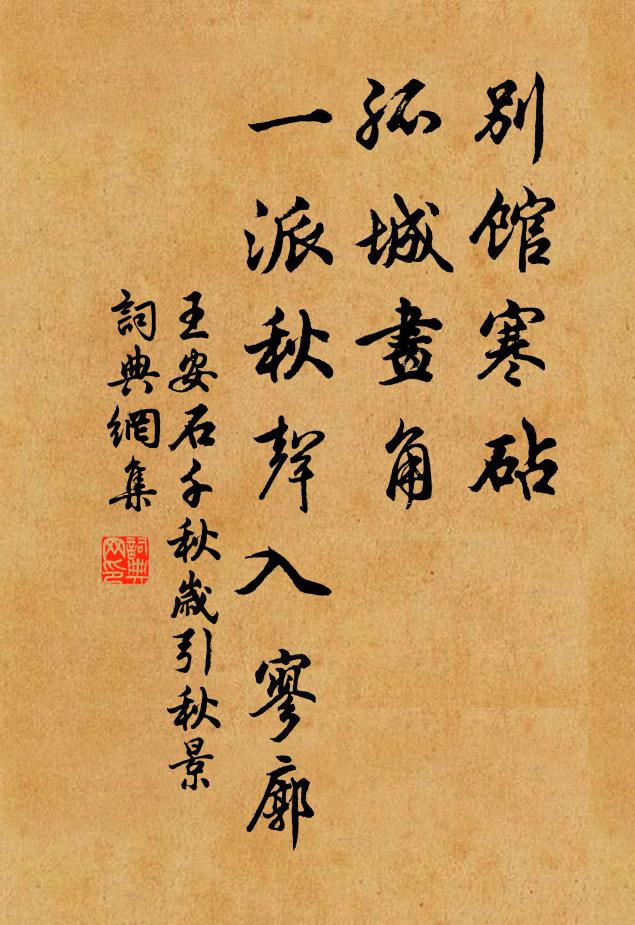 別館寒砧
孤城畫角
一派秋聲入寥廓
王安石千秋歲引秋景
詞典網集
詞典网印